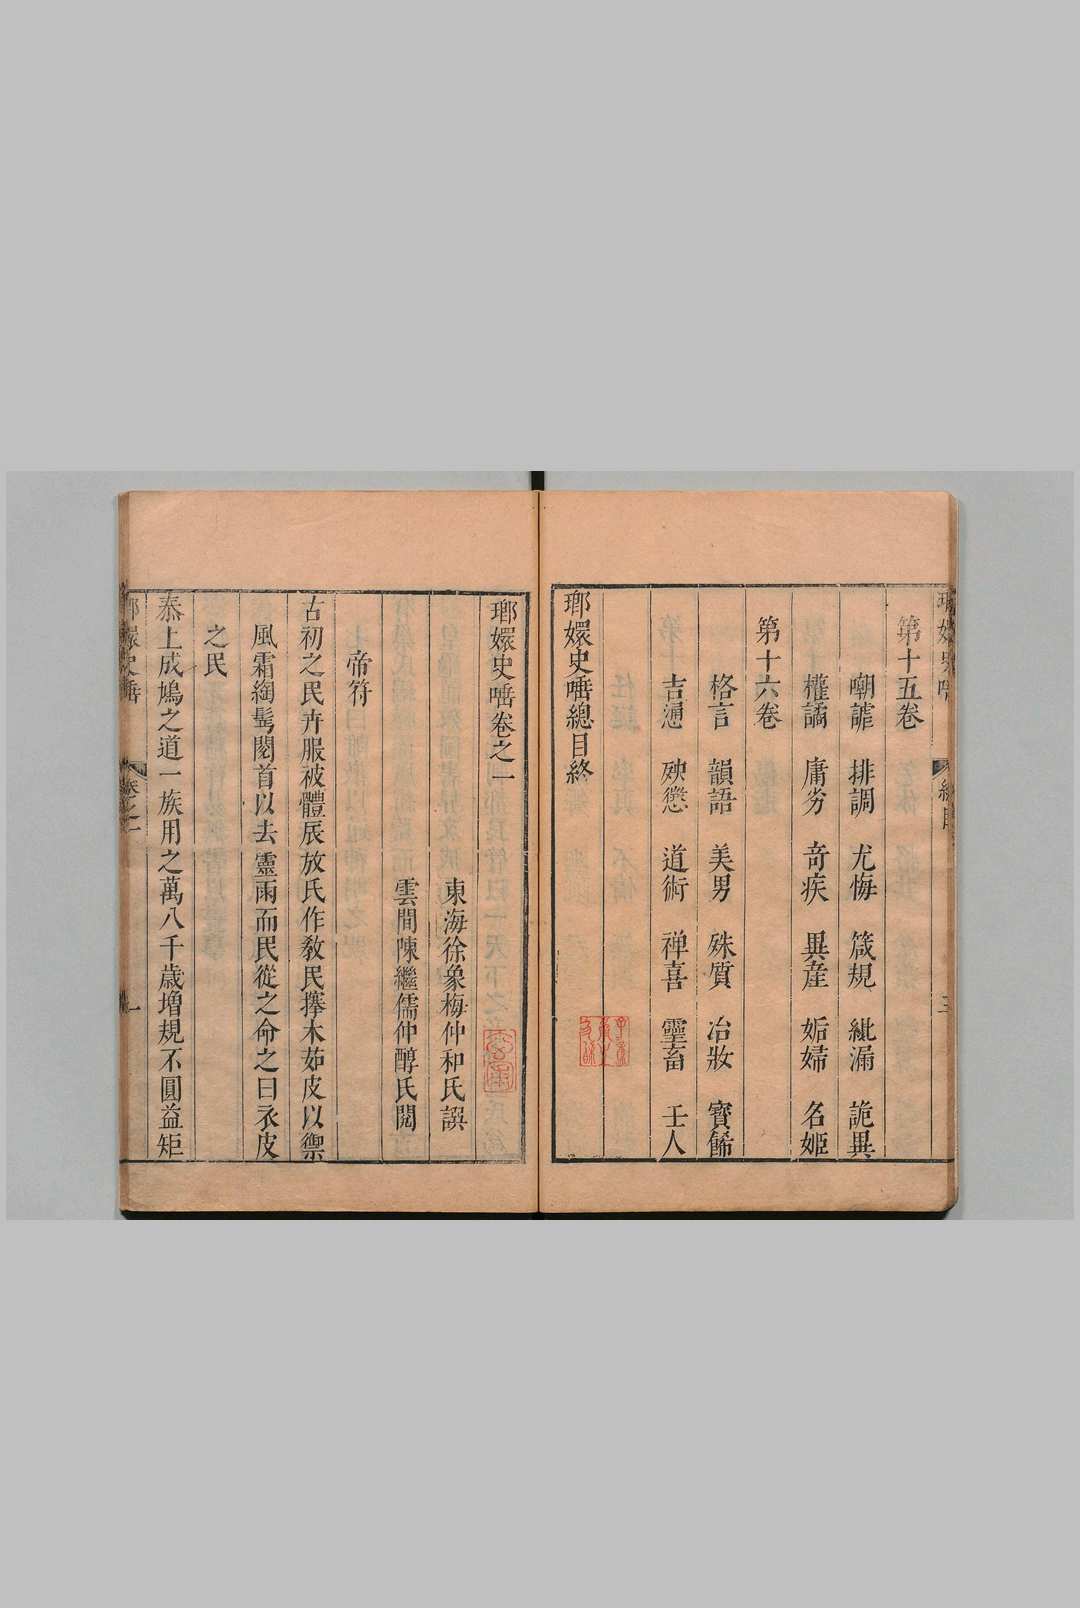 第十五卷
嘲謔 排調 尤悔 箴規 紕漏 詭異
權譎 庸劣 奇疾 異產 妬婦 名姬
第十六卷
格言 韻語 美男 殊質 冶妝 寶飾
吉邇 殃愆 道術 禪喜 靈畜 壬人
瑯嬛史唾總目終
瑯嬛史唾卷之一
東海徐象梅仲和氏譔
雲間陳繼儒仲醇氏閱
帝符
古初之民卉服被體辰放氏作敎民㩓木茹皮以禦
風霜綯髦閿首以去靈雨而民從之命之曰衣皮
之民
泰上成鳩之道一族用之萬八千歲增規不圓益矩
瑯嬛史唾 卷之一 一